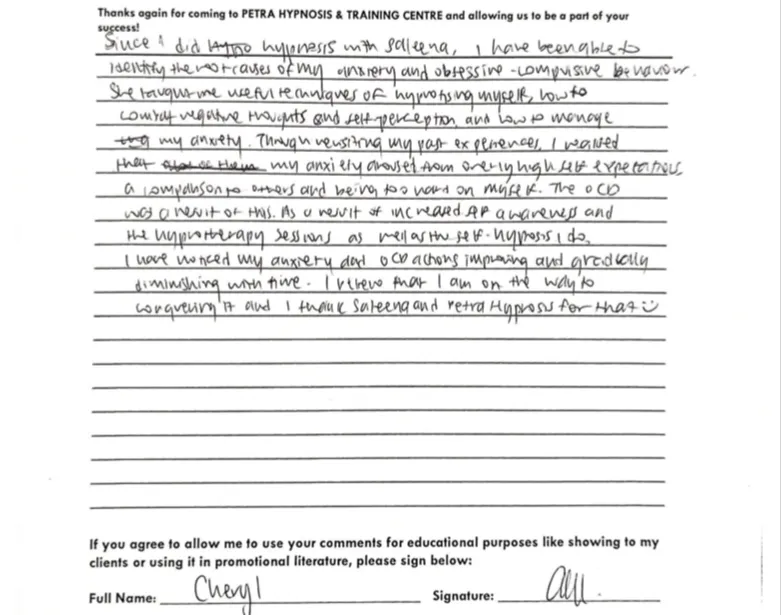 Thanks again for coming to PETRA HYPNOSIS & TRAINING CENTRE and allowing us to be a part of your
success!
Since I did hypnosis with Saleena, I have been able to
identify the root causes of my anxiety and obsessive-compulsive behaviour.
She taught me useful techniques of hypnotising myself, how to
combat negative thoughts and self-perception, and how to manage
my anxiety. Through revisiting my past experiences, I realised
that my anxiety aroused from overly high self expectations
a comparison to others and being too hard on myself. The OCD
was a result of this. As a result of increased awareness and
the hypnotherapy sessions as well as the self-hypnosis I do,
I have noticed my anxiety and OCD actions improving and gradually
diminishing with time. I believe that I am on the way to
conquering it and I thank Saleena and Petra Hypnosis for that
If you agree to allow me to use your comments for educational purposes like showing to my
clients or using it in promotional literature, please sign below:
Full Name: Cheryl Signature: